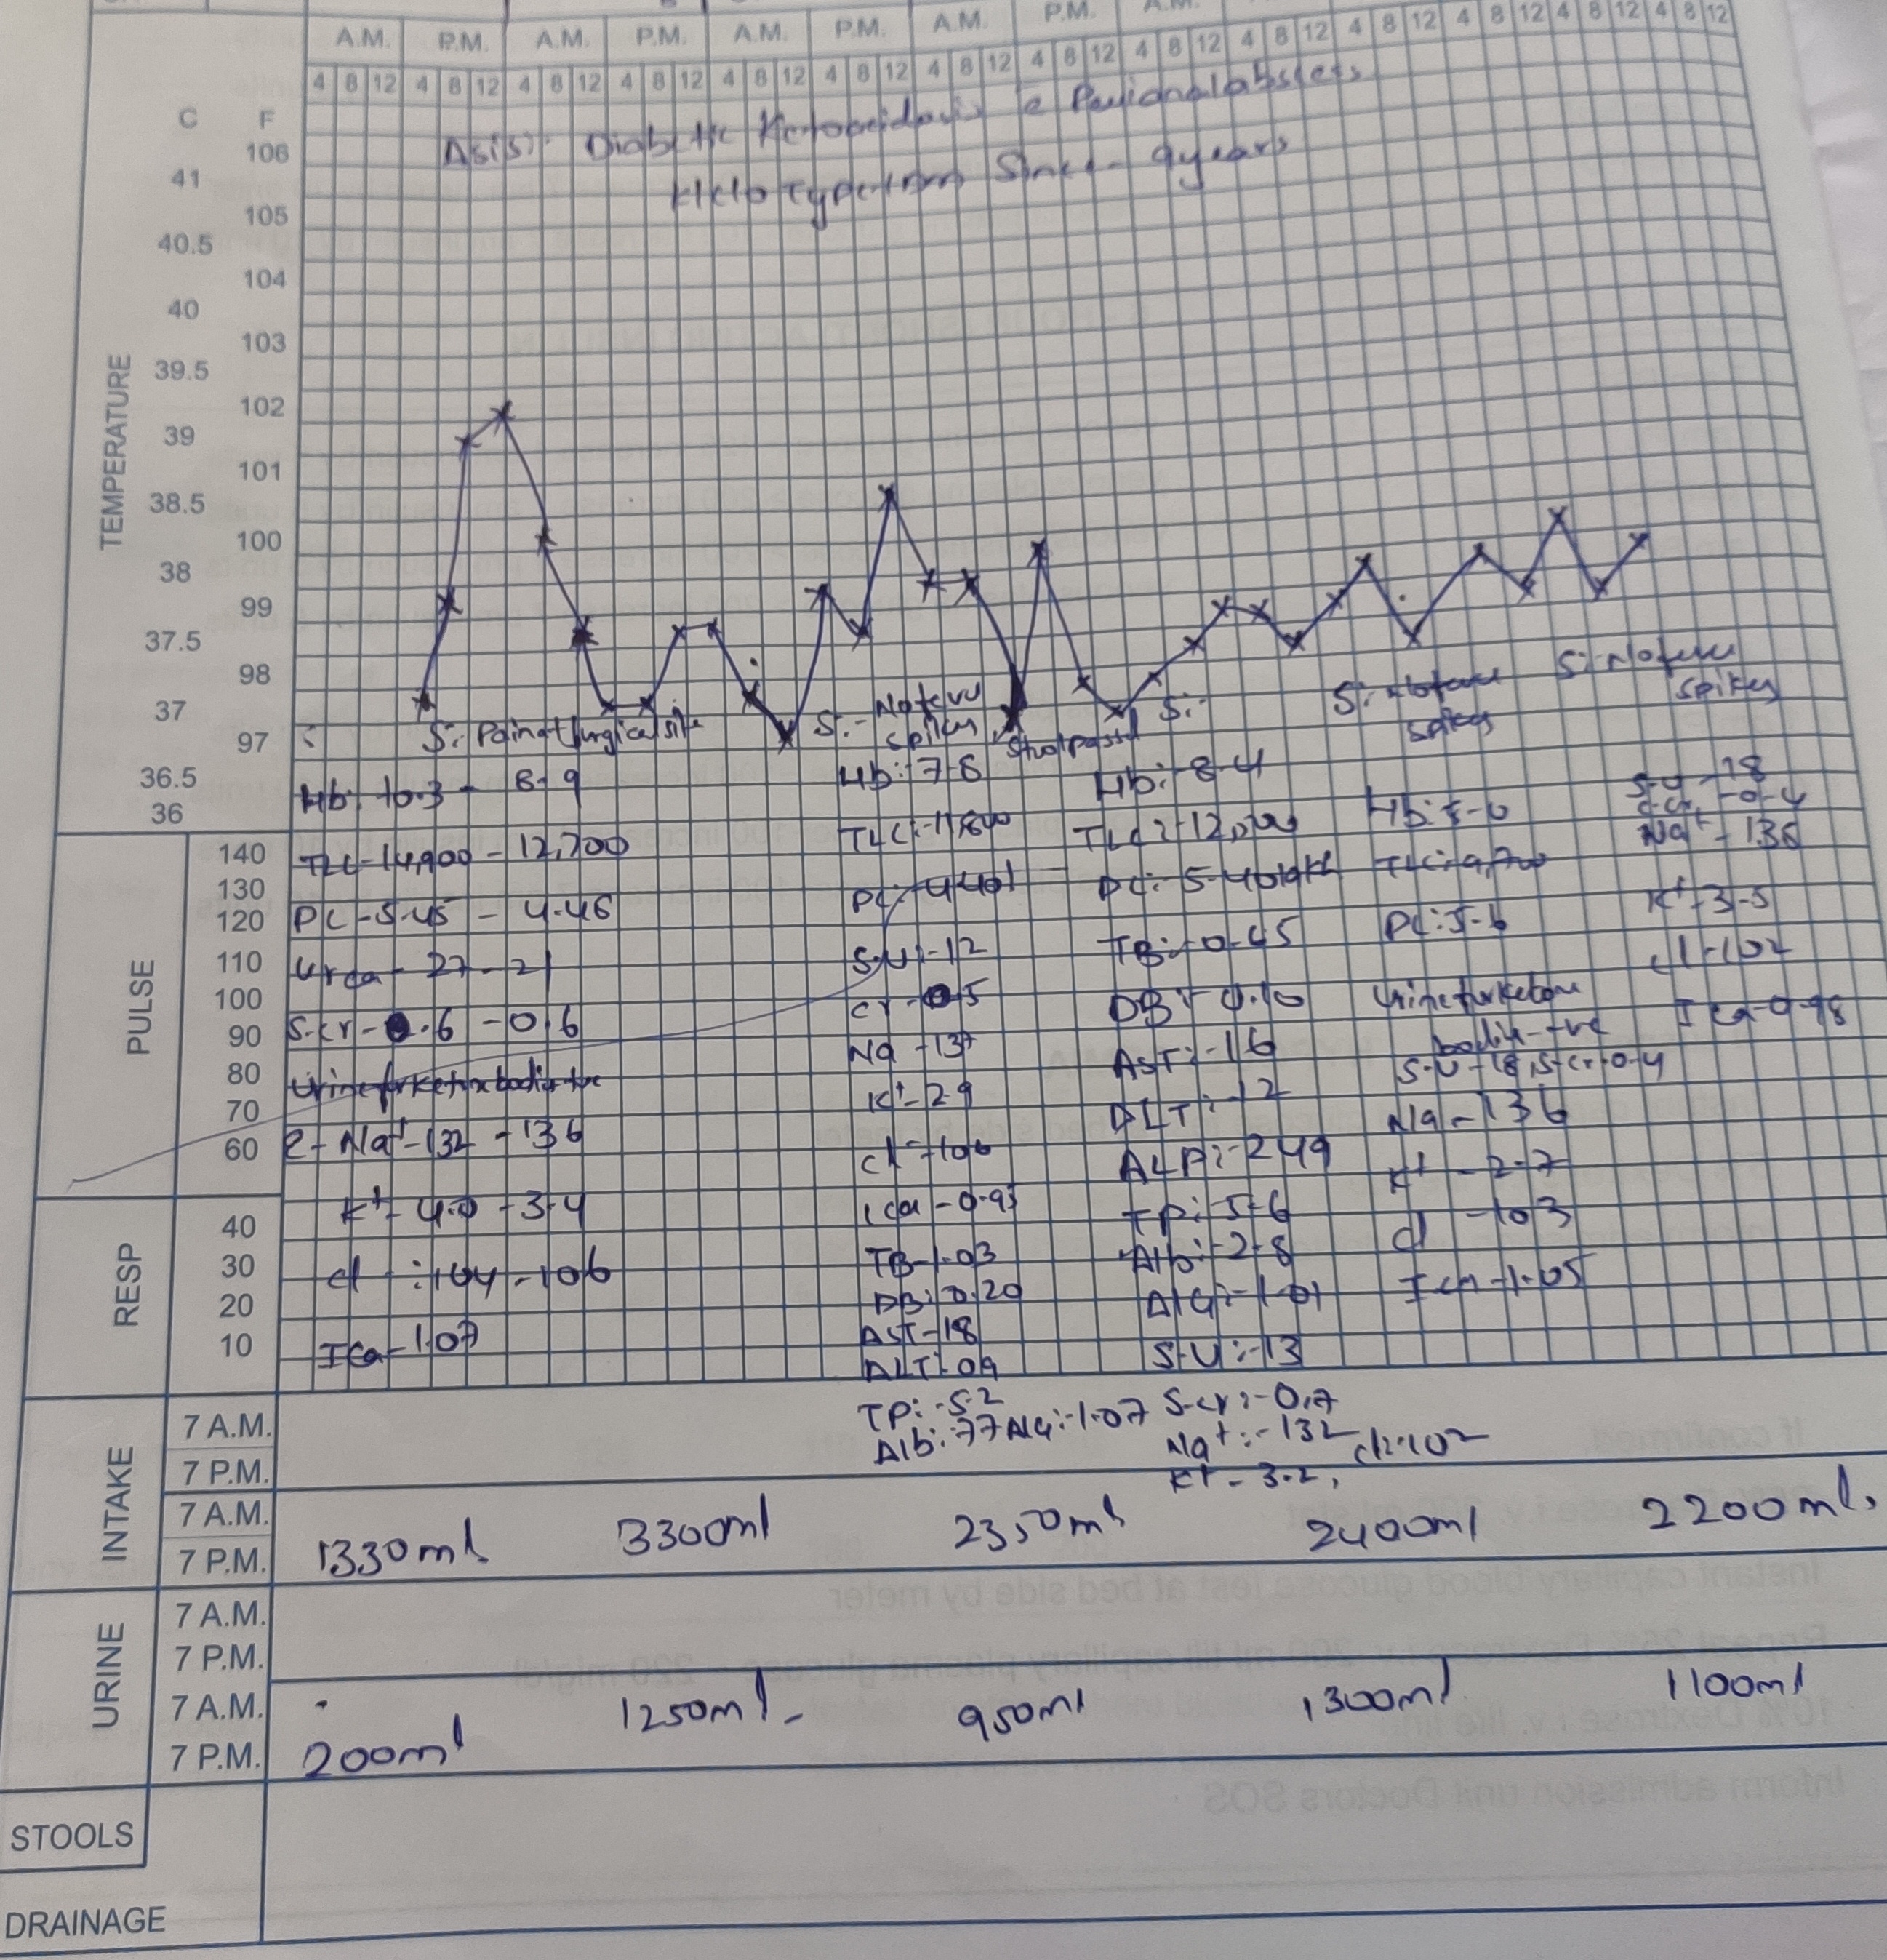 A.M. P.M. A.M. P.M. A.M. P.M. A.M. P.M. A.M.
4 8 12 4 8 12 4 8 12 4 8 12 4 8 12 4 8 12 4 8 12 4 8 12 4 8 12 4 8 12 4 8 12 4 8 12 4 8 12 4 8 12
C F
TEMPERATURE
106
41
105
40.5
104
40
103
39.5
102
39
101
38.5
100
38
99
37.5
98
37
97
36.5
36
Diabetic Ketoacidosis c Perianal abscess
Type 1 DM Since - 9 years
S: Pain at surgical site
S:- No fever spikes
Stool passed
S:-
S: No fever spikes
S: No fever spikes
PULSE
140
130
120
110
100
90
80
70
60
RESP
40
30
20
10
Hb: 10.3 - 8.9
TLC - 14,900 - 12,700
PC - 5.45 - 4.46
Urea - 27 - 21
S.cr - 0.6 - 0.6
Urine for ketone bodies +ve
Na+ - 132 - 136
K+ - 4.0 - 3.4
Cl - : 104 - 106
ICa - 1.07
Hb: 7.8
TLC:-
PC:-
S.U:-12
Cr - 0.5
Na - 137
K+ - 2.9
Cl - 106
ICa - 0.93
TB - 1.03
DB: 0.20
AST - 18
ALT: 09
TP: - 5.2
Alb: A/G:-1.07
Hb:- 8.4
TLC:-
PC:- 5.40 lakh
TB:- 0.65
DB:- 0.10
AST:- 16
ALT:- 12
ALP:- 249
TP:- 5.6
Alb:- 2.8
A/G:- 1.01
S.U:-13
S.cr:- 0.7
Na+:- 132 Cl:102
K+ - 3.2,
Hb:
TLC: 9,700
PC: 5.6
Urine for ketone
bodies -ve
S.U - 18, S.cr - 0.4
Na - 136
K+ - 2.7
Cl - 103
ICa - 1.05
S.U - 18
S.cr - 0.4
Na+ - 136
K+ - 3.5
Cl - 102
ICa - 0.98
INTAKE
7 A.M.
7 P.M.
7 A.M.
7 P.M.
1330ml 3300ml 2350ml 2400ml 2200ml.
URINE
7 A.M.
7 P.M.
7 A.M.
7 P.M.
200ml 1250ml - 950ml 1300ml 1100ml
STOOLS
DRAINAGE